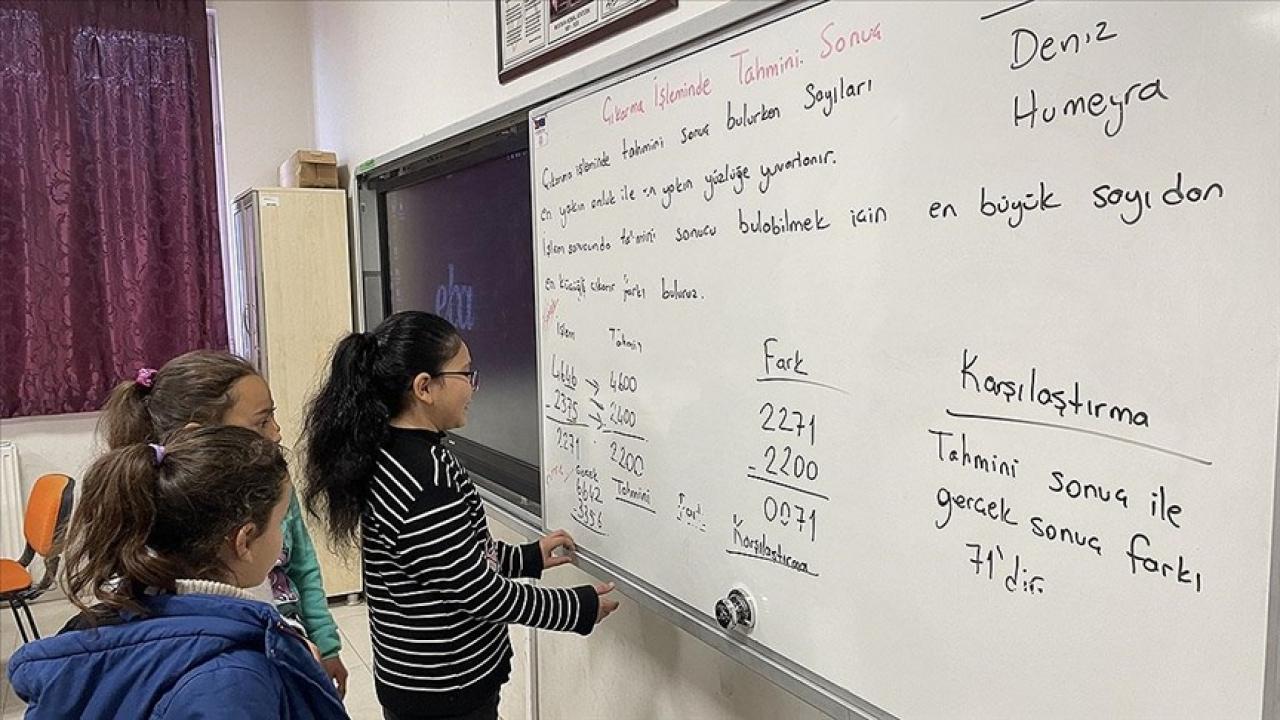 Çıkarma İşleminde Tahmini Sonuç
Deniz
Humeyra
Çıkarma işleminde tahmini sonuç bulurken Sayıları
en yakın onluk ile en yakın yüzlüğe yuvarlanır.
işlem sonucunda tahmini sonucu bulabilmek için en büyük sayıdan
en küçüğü çıkarır farkı buluruz.
eba
işlem Tahmin
4646 → 4600
- 2375 → 2400
2271 2200
Gerçek Tahmini
5642
3356
Fark
2271
- 2200
0071
Karşılaştırma
Karşılaştırma
Tahmini sonuç ile
gerçek sonuç farkı
71'dir.